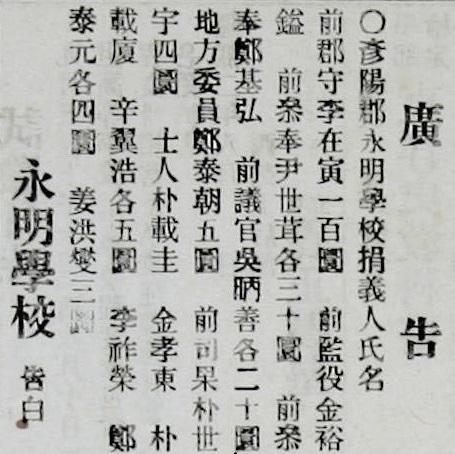 廣告
○彦陽郡永明學校捐義人氏名
前郡守李在寅一百圜 前監役金裕
鎰 前叅奉尹世茸各三十圜 前叅
奉鄭基弘 前議官吳昞善各二十圜
地方委員鄭泰朝五圜 前司果朴世
宇四圜 士人朴載圭 金孝東 朴
載廈 辛翼浩各五圜 李祚榮 鄭
泰元各四圜 姜洪燮三圜
永明學校 告白